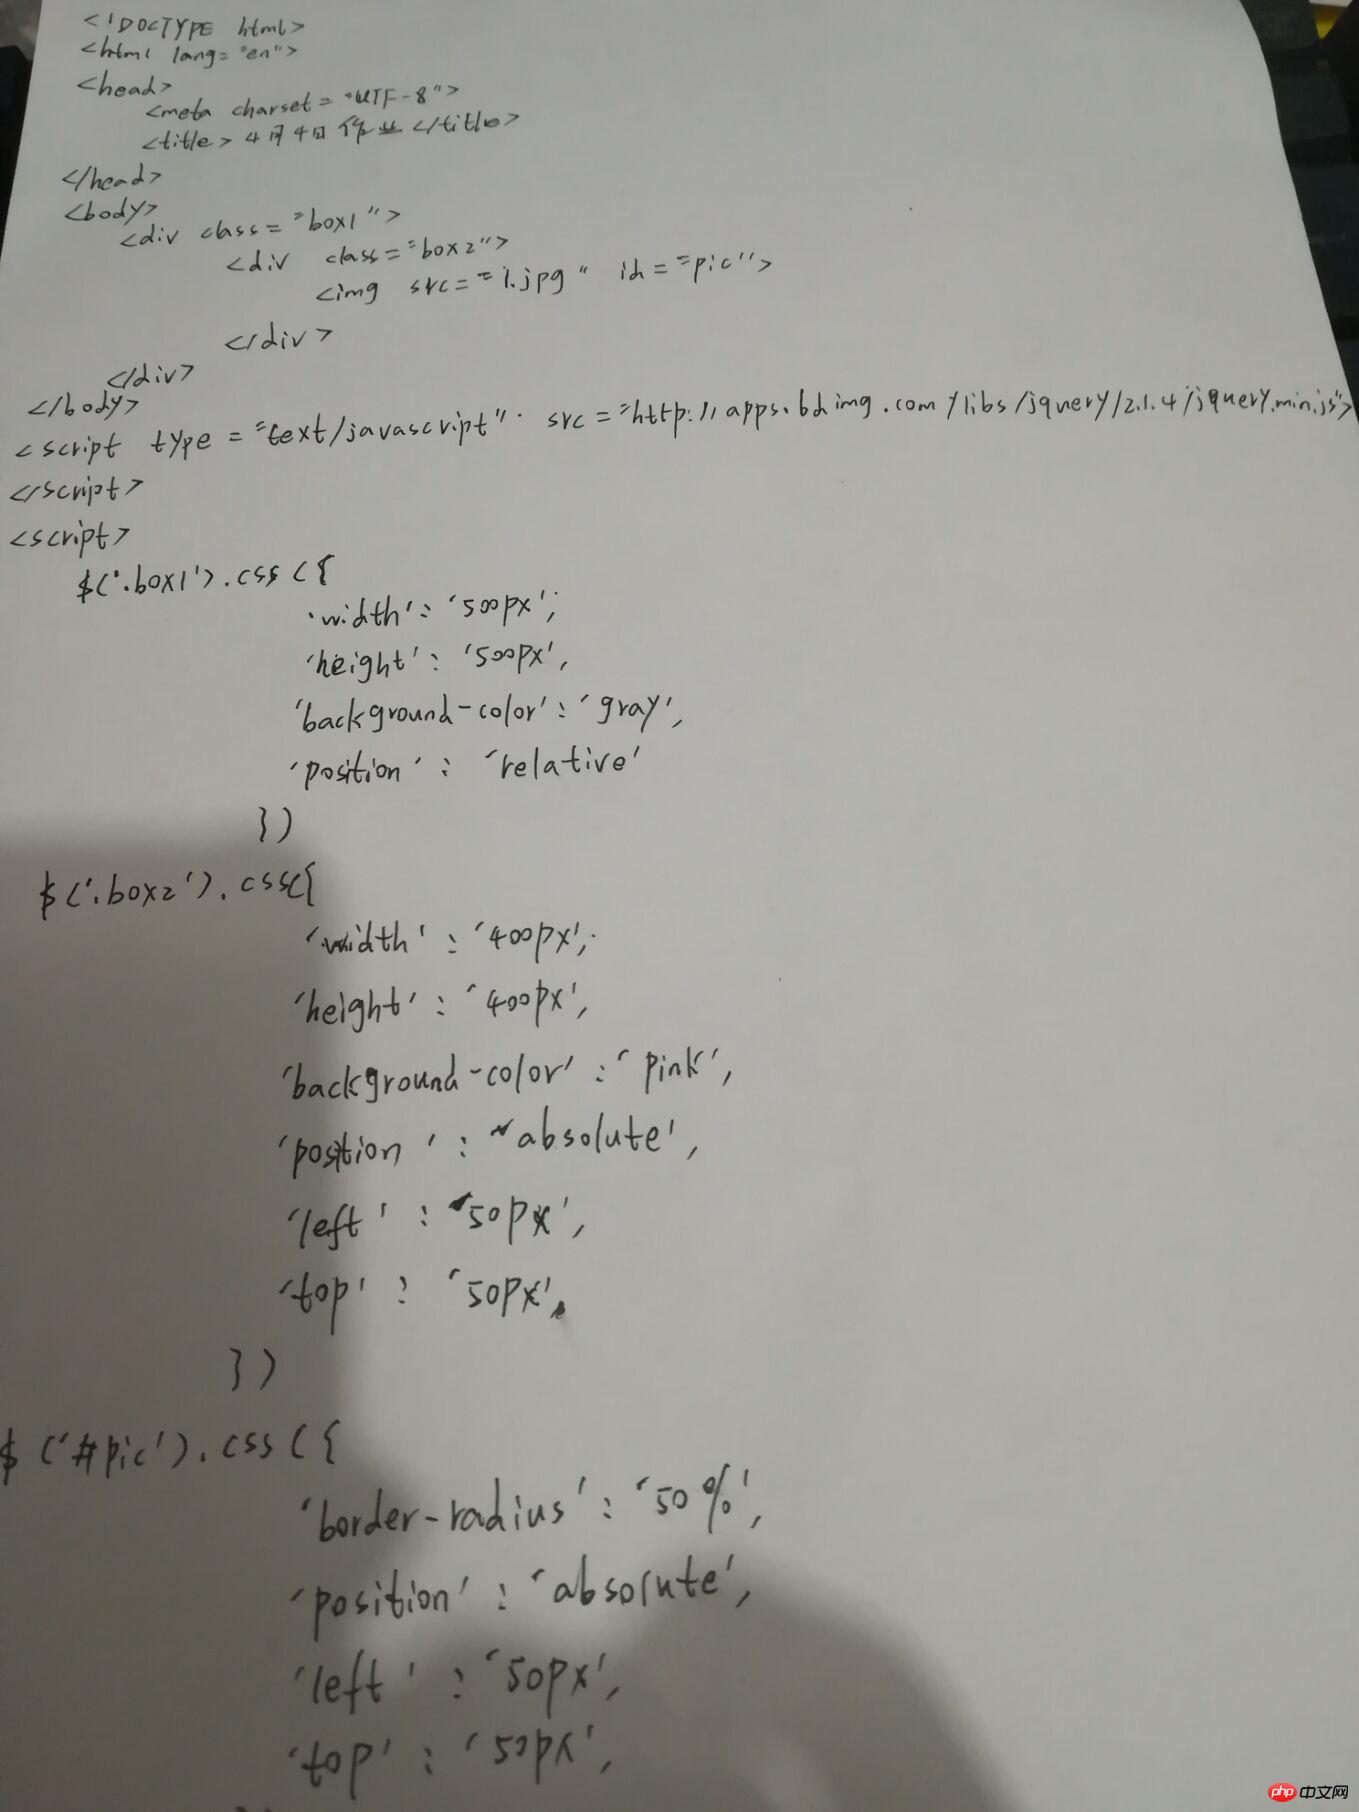 <!DOCTYPE html>
<html lang="en">
<head>
<meta charset="UTF-8">
<title>4月4日作业</title>
</head>
<body>
<div class="box1">
<div class="box2">
<img src="1.jpg" id="pic">
</div>
</div>
</body>
<script type="text/javascript" src="http://apps.bdimg.com/libs/jquery/2.1.4/jquery.min.js">
</script>
<script>
$('.box1').css({
'width':'500px',
'height':'500px',
'background-color':'gray',
'position':'relative'
})
$('.box2').css({
'width':'400px',
'height':'400px',
'background-color':'pink',
'position':'absolute',
'left':'50px',
'top':'50px',
})
$('#pic').css({
'border-radius':'50%',
'position':'absolute',
'left':'50px',
'top':'50px',
php中文网